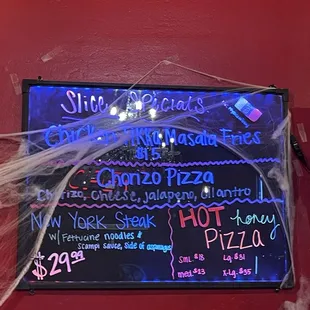 Slice Specials
Chicken Tikka Masala Fries
$15
Chorizo Pizza
Chorizo, Cheese, jalapeno, cilantro
New York Steak
w/ Fettucine noodles &
Scampi sauce, side of asparagus
$29.99
HOT honey
Pizza
SML $18 Lg. $31
med. $23 X-Lg. $35